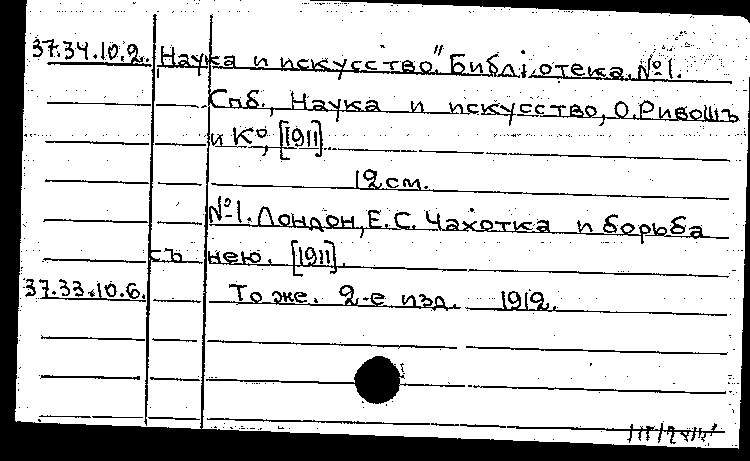 37.34.10.2. „Наука и искусство" Библiотека. №1.
Спб., Наука и искусство, О. Ривошъ
и К°, [1911]
12 см.
№1. Лондон, Е.С. Чахотка и борьба
съ нею. [1911].
37.33.10.6. То же. 2-е изд. 1912.